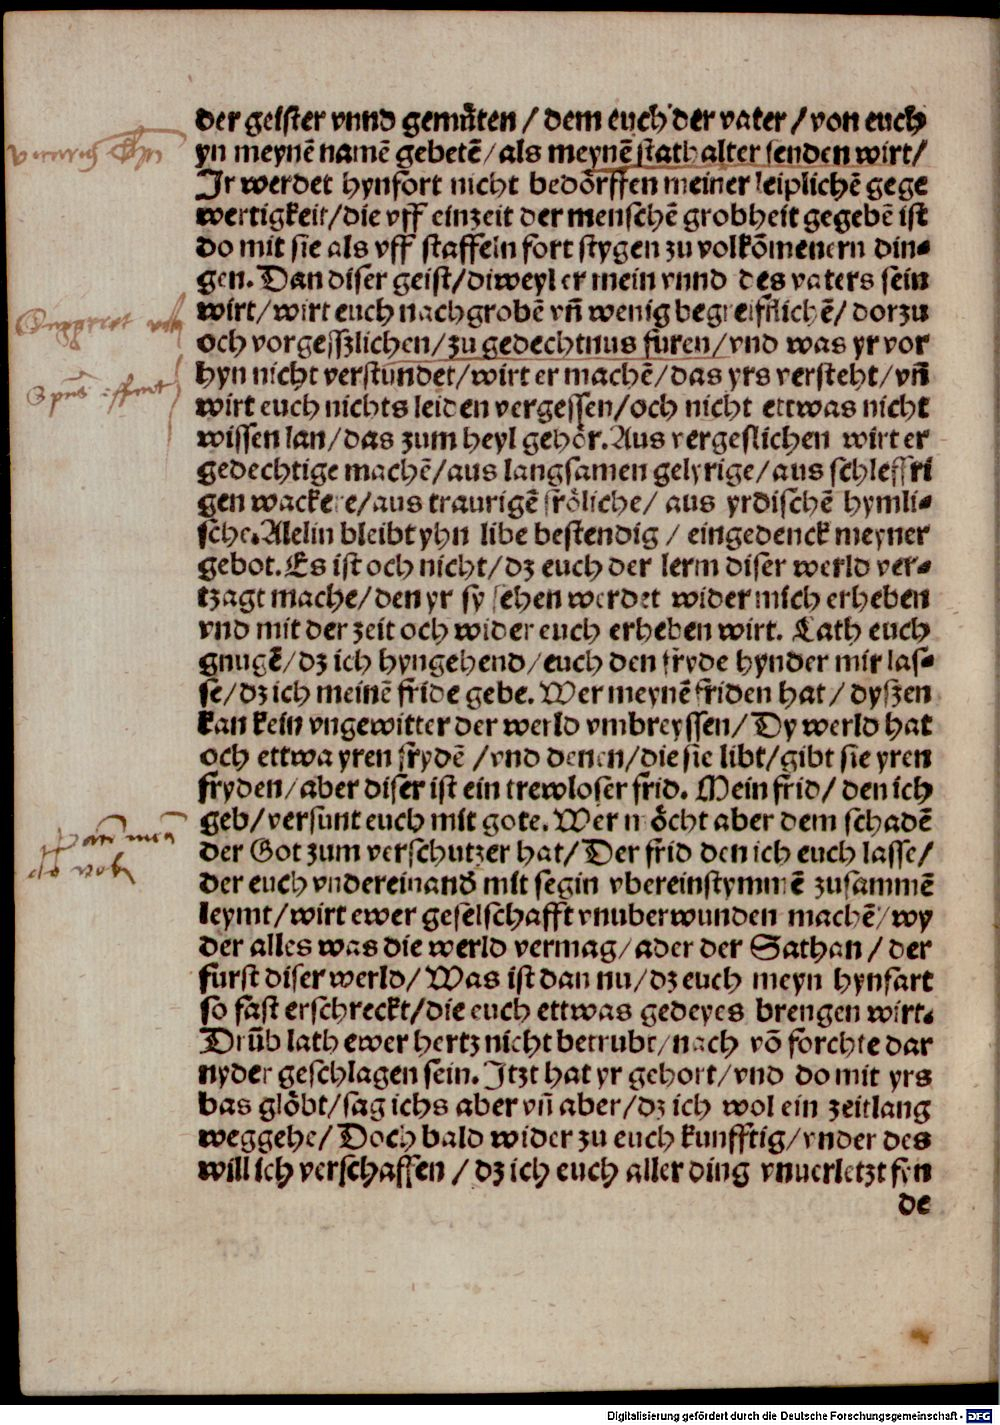 der geister vnnd gemüten / dem euch der vater / von euch
yn meynē namē gebetē / als meynē stathalter senden wirt /
Ir werdet hynfort nicht bedörffen meiner leiplichē gege
wertigkeit / die vff einzeit der menschē grobheit gegebē ist
do mit sie als vff staffeln fort stygen zu volkōmenern din-
gen. Dan diser geist / diweyl er mein vnnd des vaters sein
wirt / wirt euch nachgrobē vn̄ wenig begreifflichē / dorzu
och vorgesszlichen / zu gedechtnus furen / vnd was yr vor
hyn nicht verstundet / wirt er machē / das yrs versteht / vn̄
wirt euch nichts leiden vergessen / och nicht ettwas nicht
wissen lan / das zum heyl gehör. Aus vergeslichen wirt er
gedechtige machē / aus langsamen gelyrige / aus schleffri
gen wackere / aus traurigē fröliche / aus yrdischē hymli-
sche. Alelin bleibt yhn libe bestendig / eingedenck meyner
gebot. Es ist och nicht / dz euch der lerm diser werld ver-
tzagt mache / den yr sy sehen werdet wider mich erheben
vnd mit der zeit och wider euch erheben wirt. Lath euch
gnugē / dz ich hyngehend / euch den fryde hynder mir las-
se / dz ich meinē fride gebe. Wer meynē friden hat / dyszen
kan kein vngewitter der werld vmbreyssen / Dy werld hat
och ettwa yren frydē / vnd denen / die sie libt / gibt sie yren
fryden / aber diser ist ein trewloser frid. Mein frid / den ich
geb / versunt euch mit gote. Wer möcht aber dem schadē
der Got zum verschutzer hat / Der frid den ich euch lasse /
der euch vndereinand mit segin vbereinstymmē zusammē
leymt / wirt ewer geselschafft vnuberwunden machē / wy
der alles was die werld vermag / ader der Sathan / der
furst diser werld / Was ist dan nu / dz euch meyn hynfart
so fast erschreckt / die euch ettwas gedeyes brengen wirt.
Drūb lath ewer hertz nicht betrubt / nach vō forchte dar
nyder geschlagen sein. Itzt hat yr gehort / vnd do mit yrs
bas glöbt / sag ichs aber vn̄ aber / dz ich wol ein zeitlang
weggehe / Doch bald wider zu euch kunfftig / vnder des
will ich verschaffen / dz ich euch aller ding vnuerletzt fyn
de
Digitalisierung gefördert durch die Deutsche Forschungsgemeinschaft - DFG